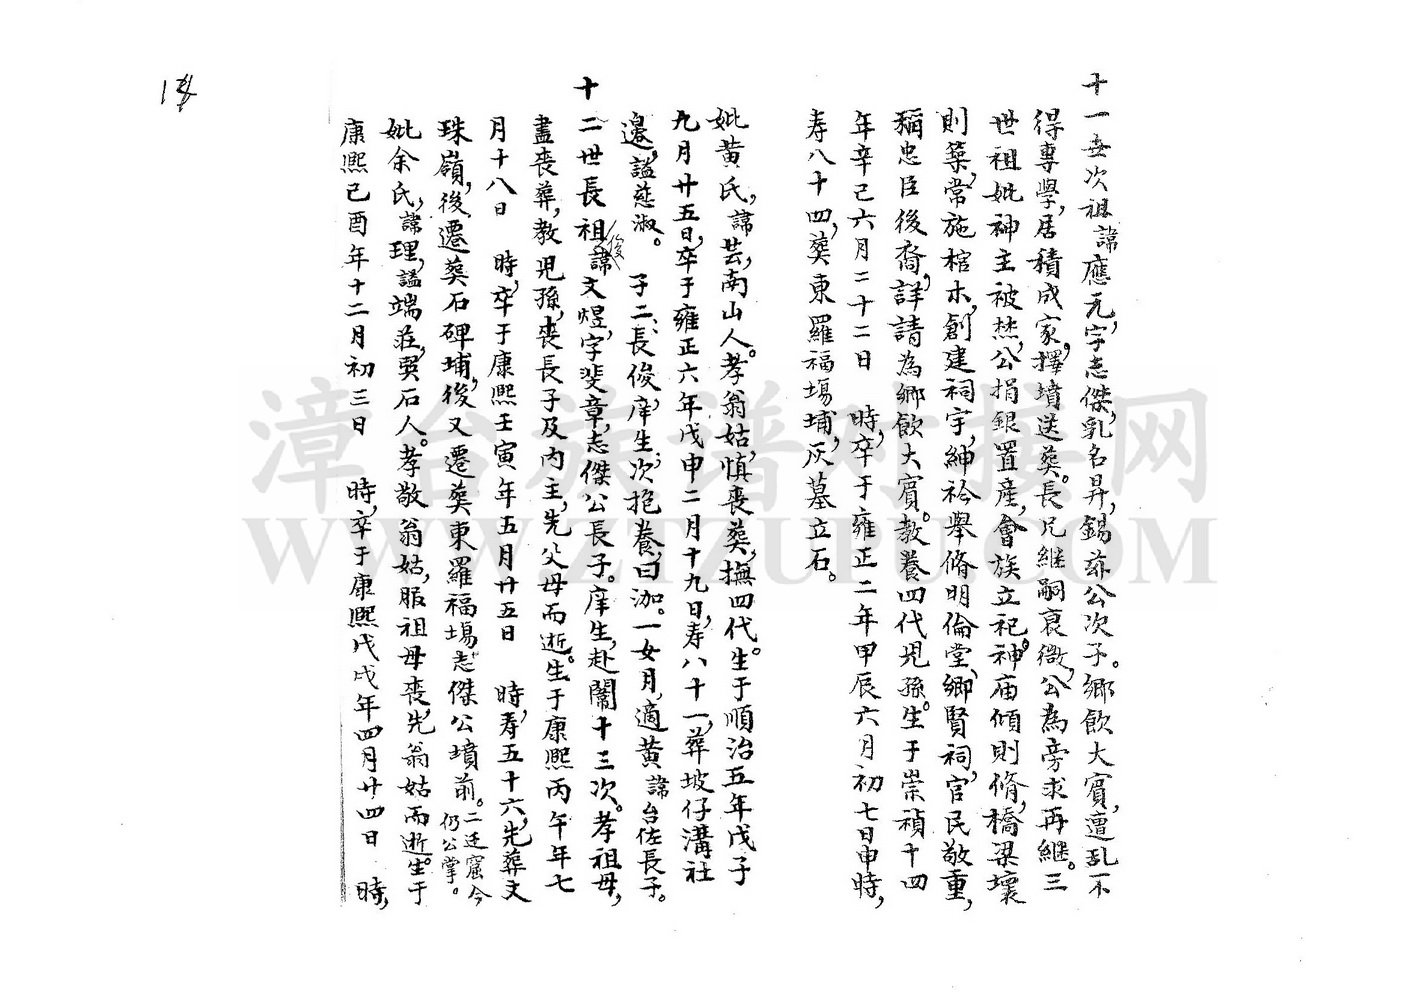 十一世次祖諱應元,字志傑,乳名昇,錫茆公次子。鄉飲大賓,遭乱不
得專學,居積成家,擇墳送葵。長兄継嗣衰微,公為旁求再継。三
世祖妣神主被焚,公捐銀置産,會族立祀。神庙傾則脩,橋梁壞
則築,常施棺木,創建祠宇,紳衿舉脩明倫堂,鄉賢祠,官民敬重,
稱忠臣後裔,詳請為鄉飲大賓。教養四代児孫。生于崇禎十四
年辛己六月二十二日 時,卒于雍正二年甲辰六月初七日申時,
寿八十四,葵東羅福塲埔,灰墓立石。
妣黄氏,諱芸,南山人。孝翁姑,慎喪葵,撫四代。生于順治五年戊子
九月廿五日,卒于雍正六年戊申二月十九日,寿八十一,葬坡仔溝社
邊,諡慈淑。 子二、長俊,庠生;次抱養,曰泇。一女月,適黄諱台佐長子。
十二世長祖俊諱文煜,字斐章,志傑公長子。庠生,赴闈十三次。孝祖母,
盡喪葬,教児孫,喪長子及内主,先父母而逝。生于康熙丙午年七
月十八日 時,卒于康熙壬寅年五月廿五日 時,寿五十六,先葬文
珠嶺,後遷葵石碑埔,後又遷葵東羅福塲志傑公墳前。二迁窟今仍公掌。
妣余氏,諱理,諡端莊,巽石人。孝敬翁姑,服祖母喪,先翁姑而逝。生于
康熙己酉年十二月初三日 時,卒于康熙戊戌年四月廿四日 時,
漳台族谱对接网
WWW.ZTZUPU.COM